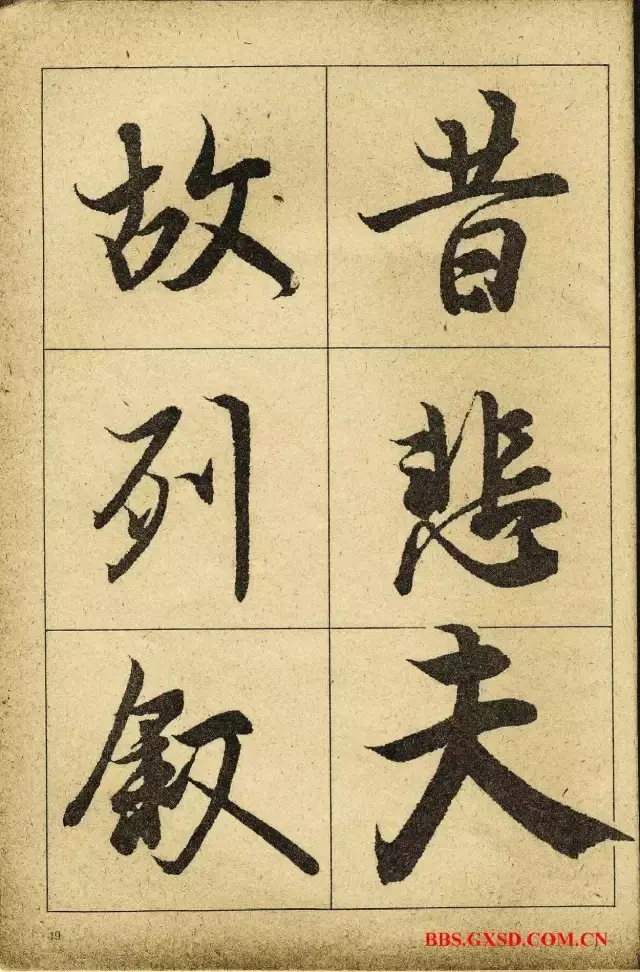 昔悲夫
故列叙
19
BBS.GXSD.COM.CN